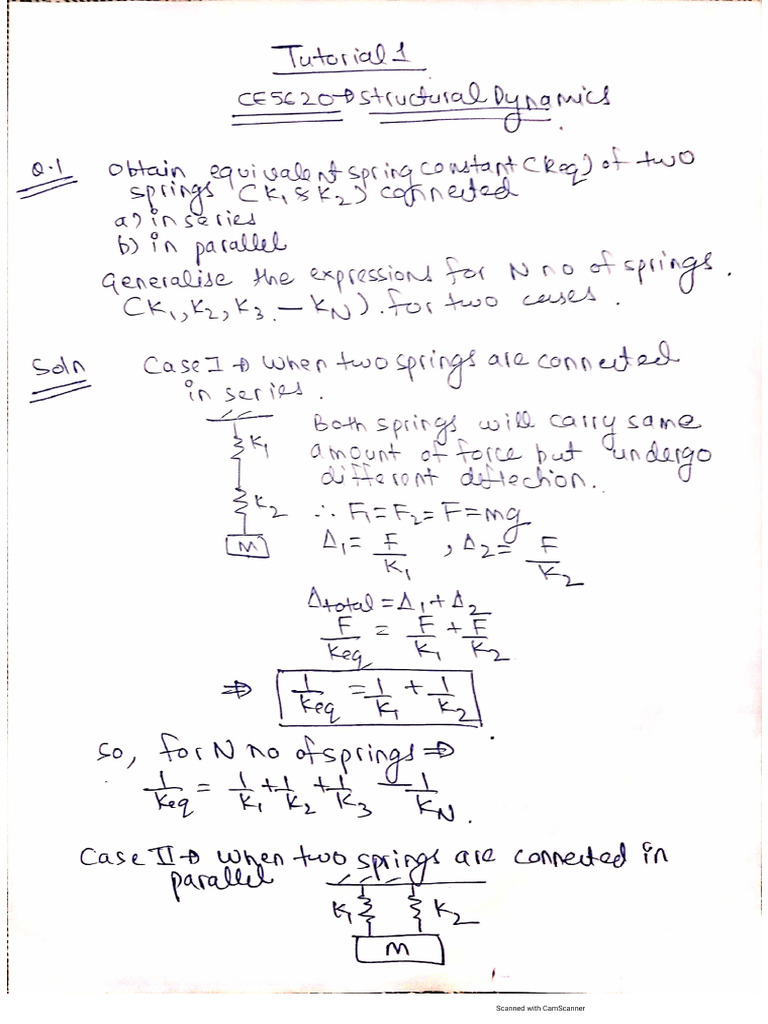 Tutorial 1
CE5620→Structural Dynamics.
Q.1 Obtain equivalent spring constant (Keq) of two
springs (K₁ & K₂) connected
a) in series
b) in parallel
Generalise the expressions for N no of springs.
(K₁, K₂, K₃ — KN). for two cases.
Soln Case I → when two springs are connected
in series.
Both springs will carry same
K₁ amount of force but undergo
different deflection..
K₂ ∴ F₁ = F₂ = F = mg
M Δ₁ = F/K₁ , Δ₂ = F/K₂
Δtotal = Δ₁ + Δ₂
F/Keq = F/K₁ + F/K₂
⇒ 1/Keq = 1/K₁ + 1/K₂
So, for N no of springs ⇒
1/Keq = 1/K₁ + 1/K₂ + 1/K₃ — 1/KN.
Case II → when two springs are connected in
parallel
K₁ K₂
M
Scanned with CamScanner